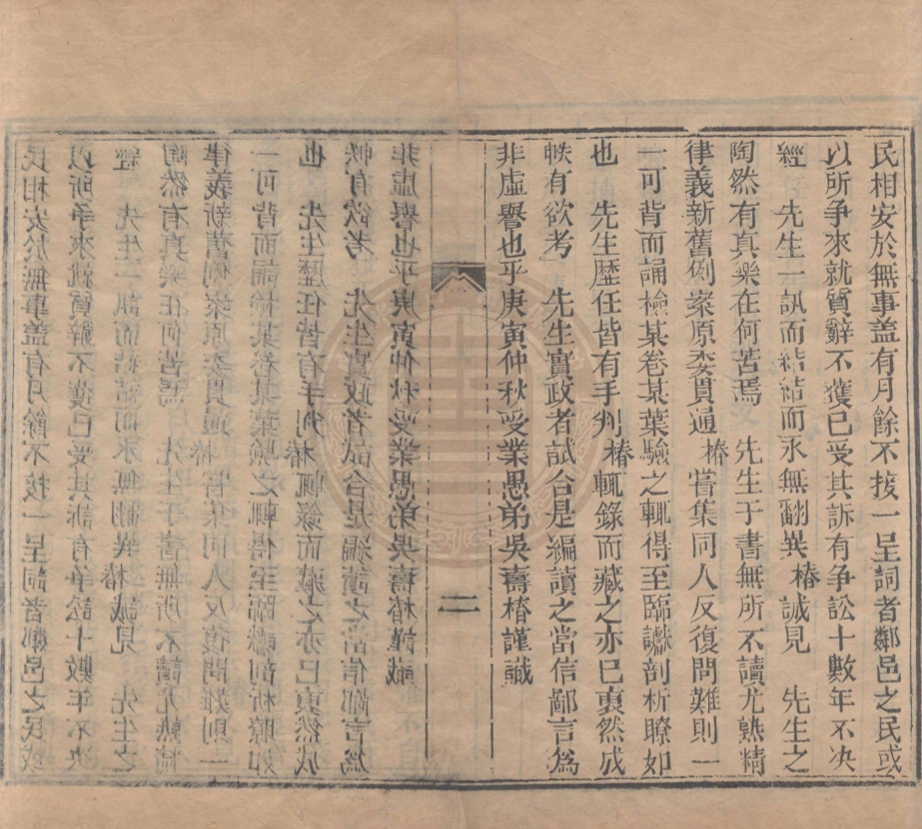 民相安於無事盖有月餘不接一呈詞者鄰邑之民或
以所争來就質辭不獲已受其訴有争訟十數年不决
經 先生一訊而結結而永無翻異椿誠見 先生之
陶然有真樂在何苦焉 先生于書無所不讀尤熟精
律義新舊例案原委貫通椿嘗集同人反復問難則一
一可背而誦檢某卷某葉驗之輒得至臨讞剖析瞭如
也 先生歷任皆有手判椿輒錄而藏之亦已裒然成
帙有欲考 先生實政者試合是編讀之當信鄙言為
非虛譽也乎庚寅仲秋受業愚弟吳壽椿謹識
二